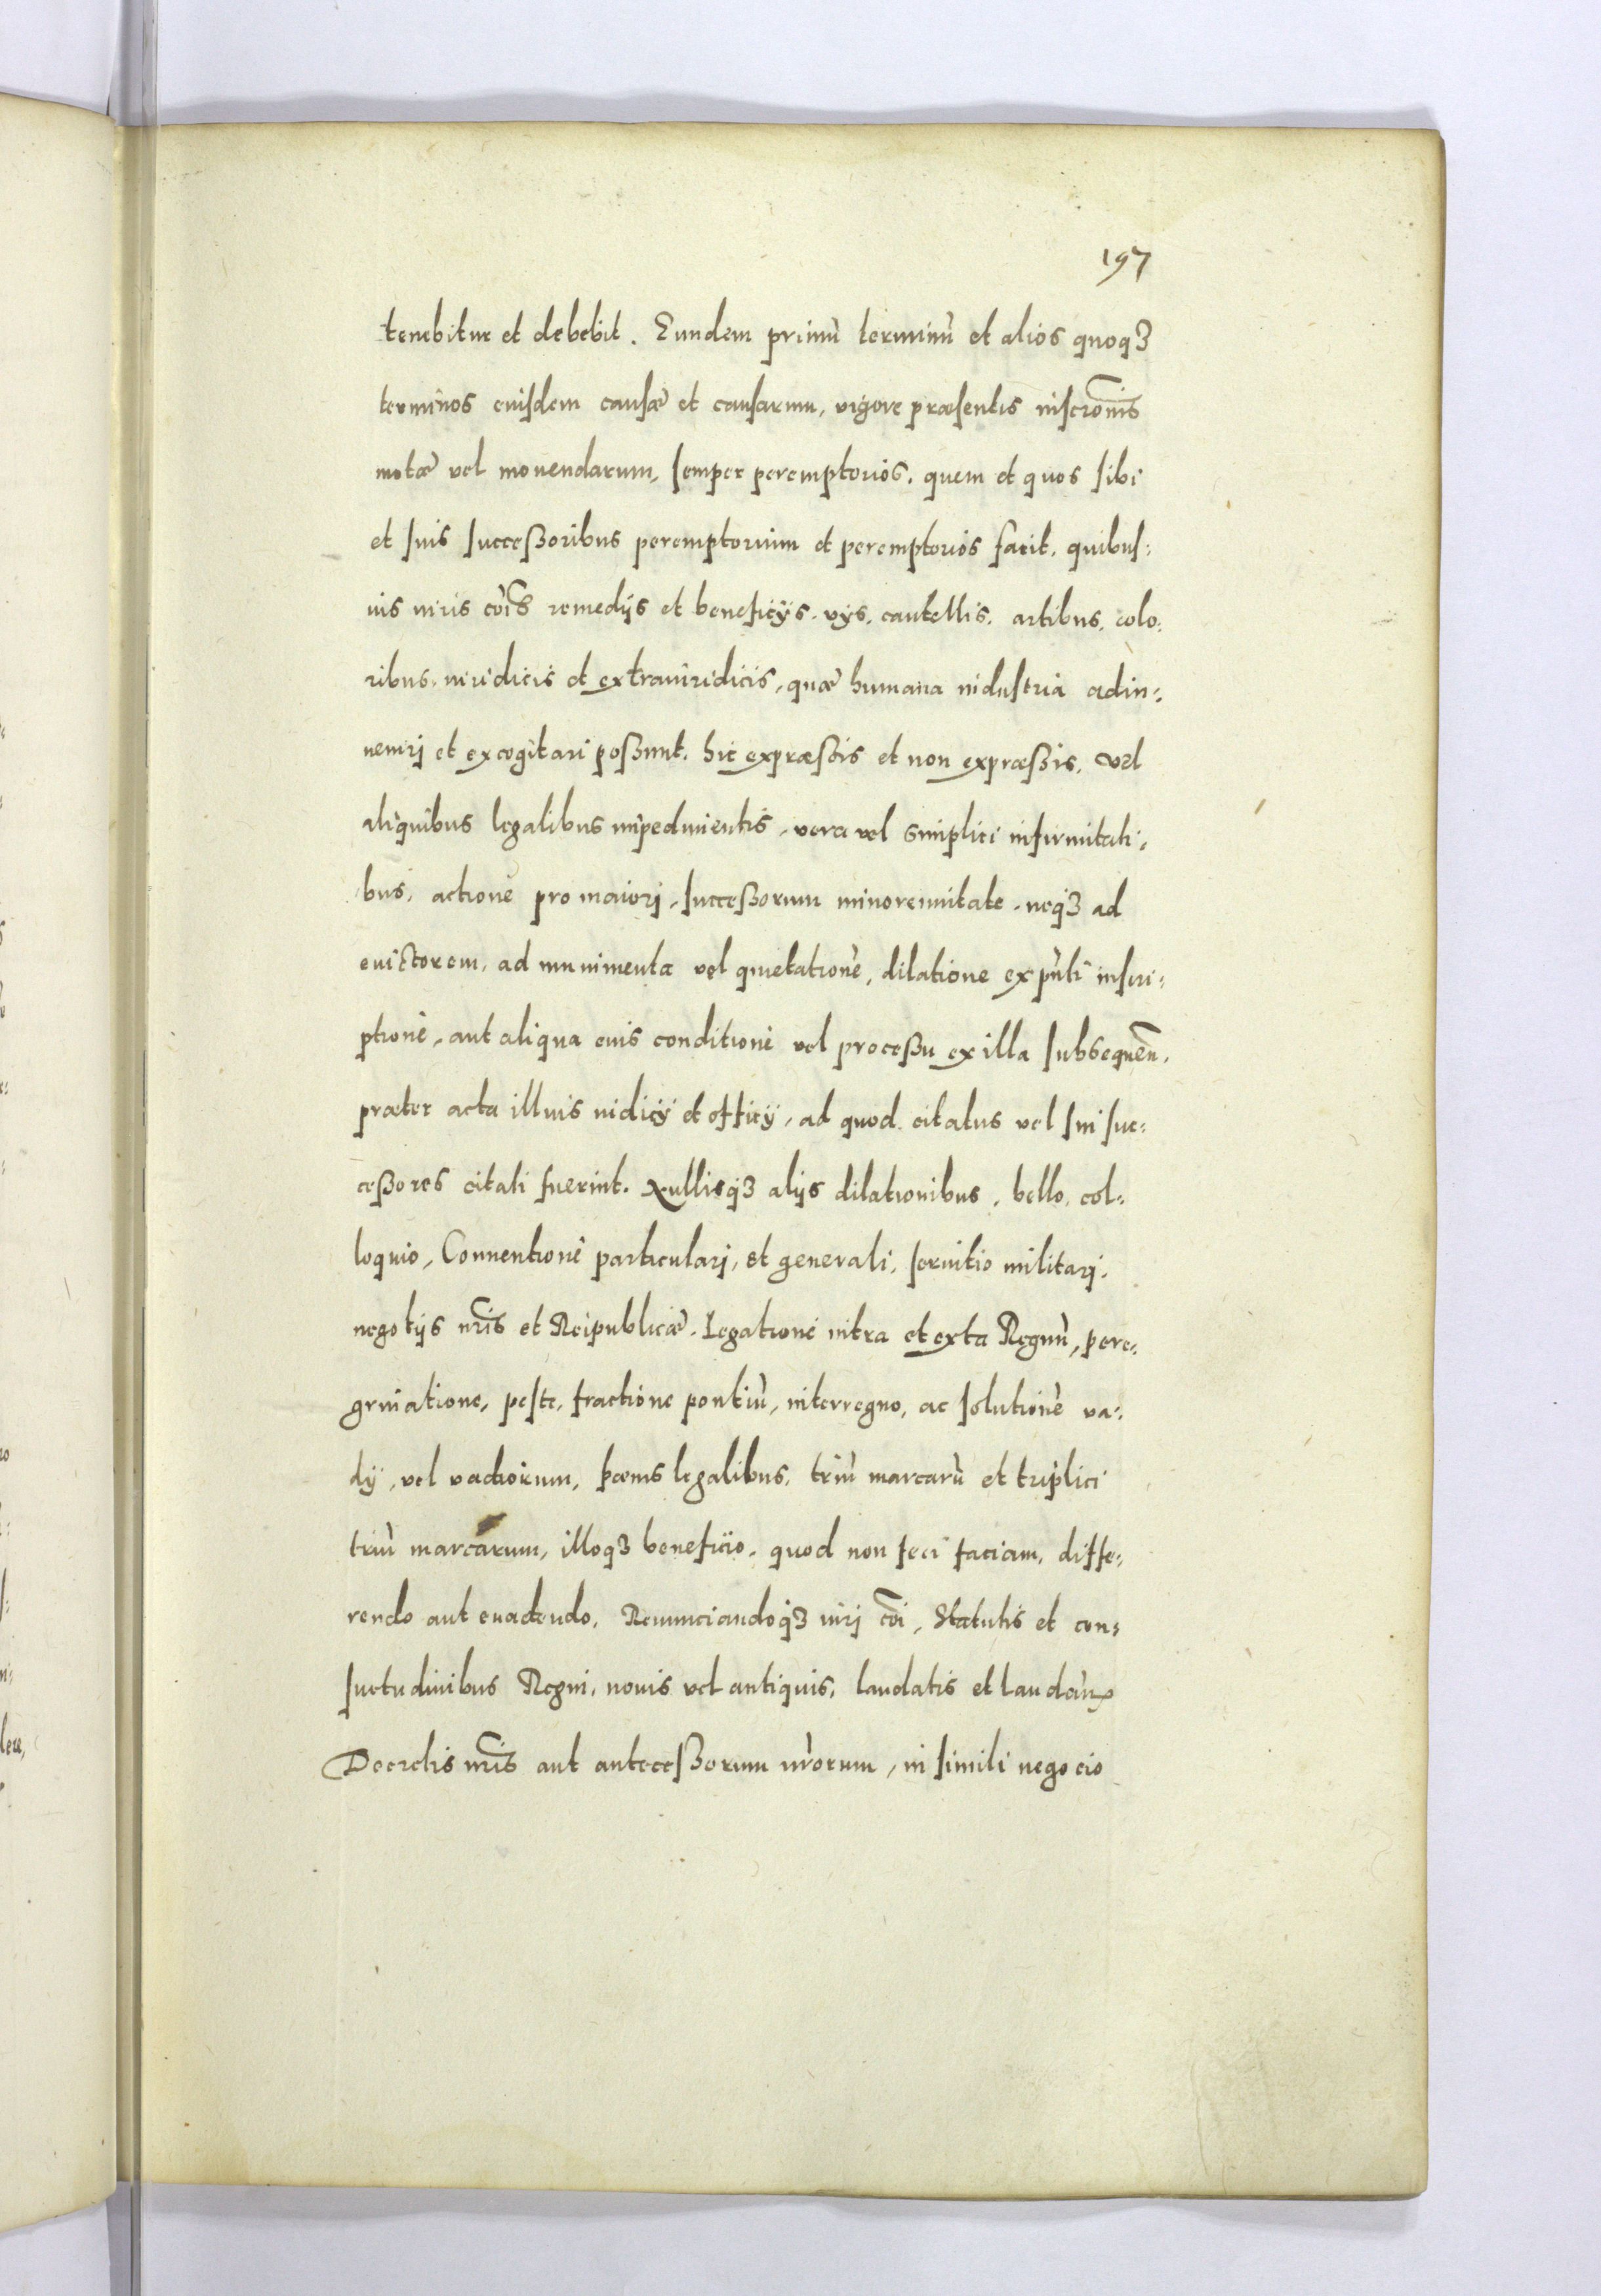 197
tenebitur et debebit. Eundem primũ terminũ et alios quoqȝ
terminos eiusdem causæ et causarum, vigore præsentis inscrõnis
motæ vel mouendarum, semper peremptorios, quem et quos sibi
et suis successoribus peremptorium et peremptorios facit, quibus-
uis iuris cõis remedijs et beneficijs, vijs, cautellis, artibus, colo-
ribus, iuridicis et extraiuridicis, quæ humana industria adin-
ueniri et excogitari possunt, hic expræssis et non expræssis, vel
aliquibus legalibus impedimentis, vera vel simplici infirmitati-
bus, actione pro maiori, successorum minorennitate, neqȝ ad
euictorem, ad munimenta vel quietationẽ, dilatione ex pñti inscri-
ptione, aut aliqua eius conditione vel processu ex illa subsequeñ.
præter acta illius iudicij et officij, ad quod citatus vel sui suc-
cessores citati fuerint. Nullisqȝ alijs dilationibus, bello, col-
loquio, Conuentione particulari, et generali, seruitio militari,
negotijs nris et Reipublicæ. Legatione intra et exta Regnũ, pere-
grinatione, peste, fractione pontiũ, interregno, ac solutione va-
dij, vel vadiorum, pœnis legalibus, triũ marcarũ et triplici
triũ marcarum, illoqȝ beneficio, quod non feci faciam, diffe-
rendo aut euadendo, Renunciandoqȝ iuri cõi, Statutis et con-
suetudinibus Regni, nouis vel antiquis, laudatis et laudañ
Decretis nris aut antecessorum nrorum, in simili negocio